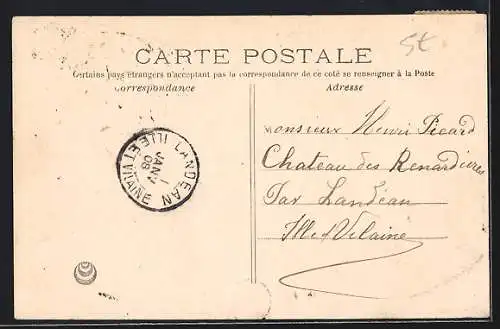 5t
CARTE POSTALE
Certains pays étrangers n'acceptant pas la correspondance de ce coté se renseigner à la Poste
Correspondance
Adresse
Monsieur Henri Picard
Chateau des Renardières
Par Landéan
Ille et Vilaine
LANDEAN
1
JANV
08
ILLE ET VILAINE